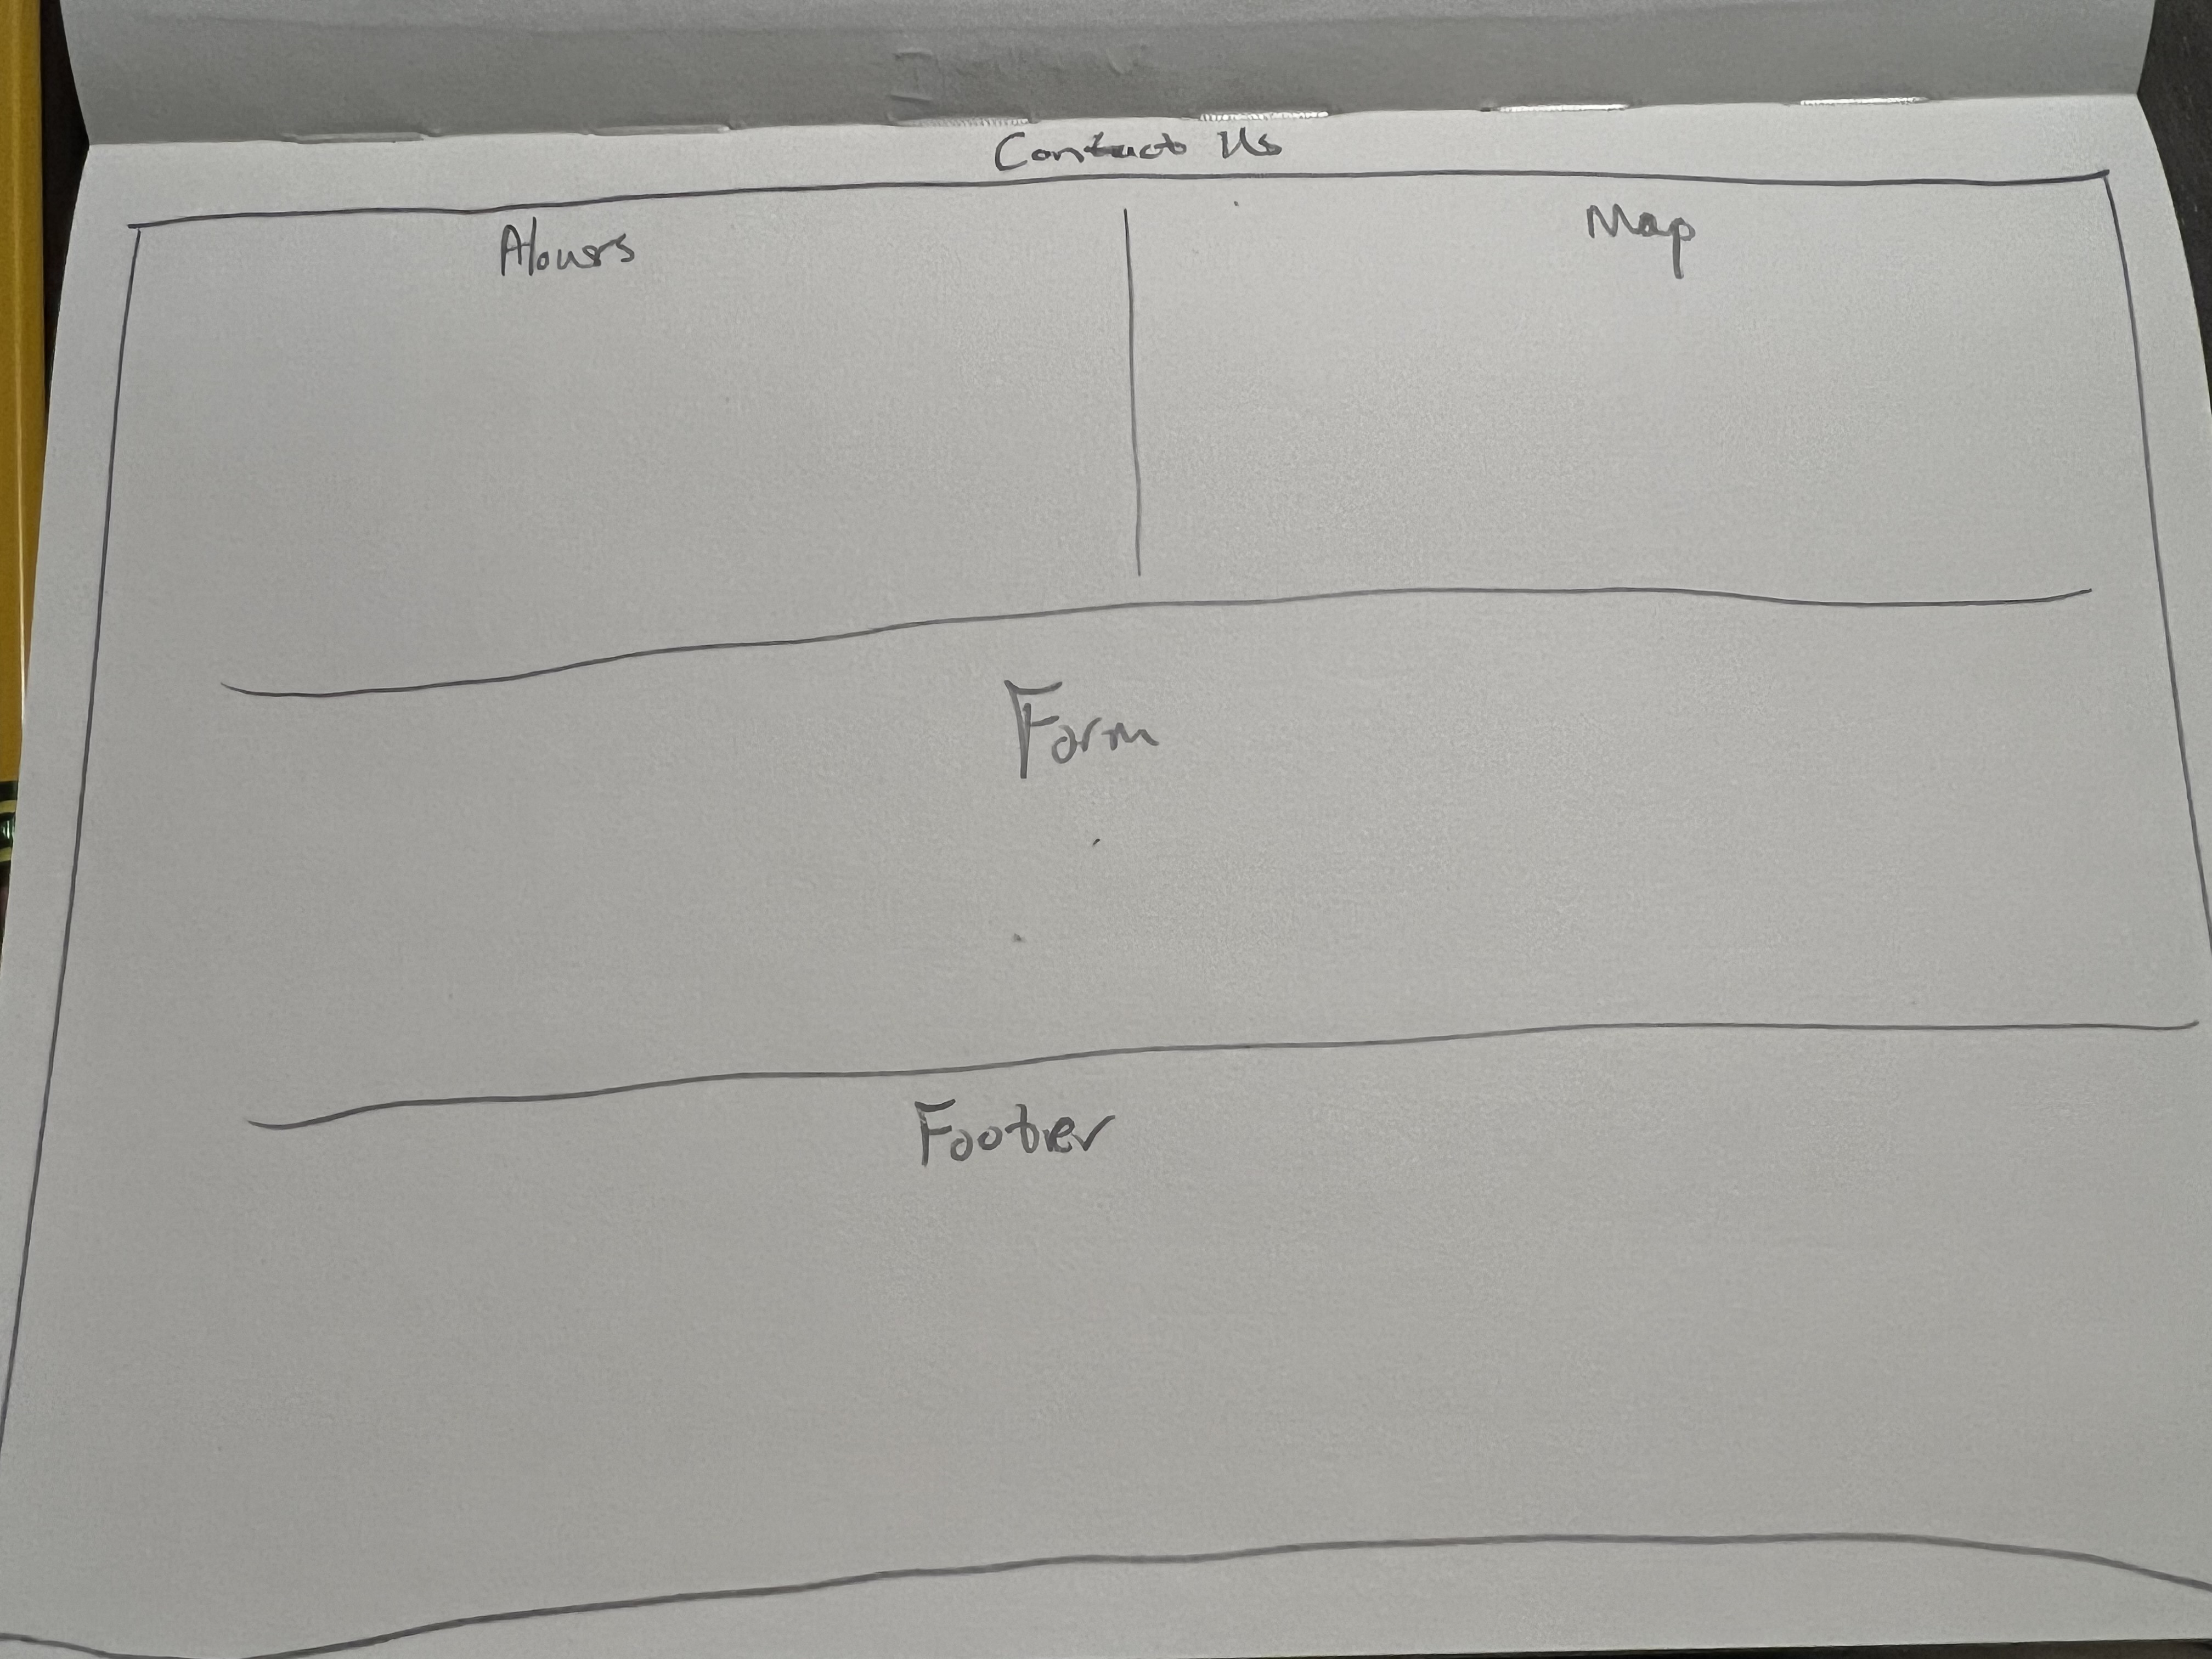 Contact Us
Hours
Map
Form
Footer